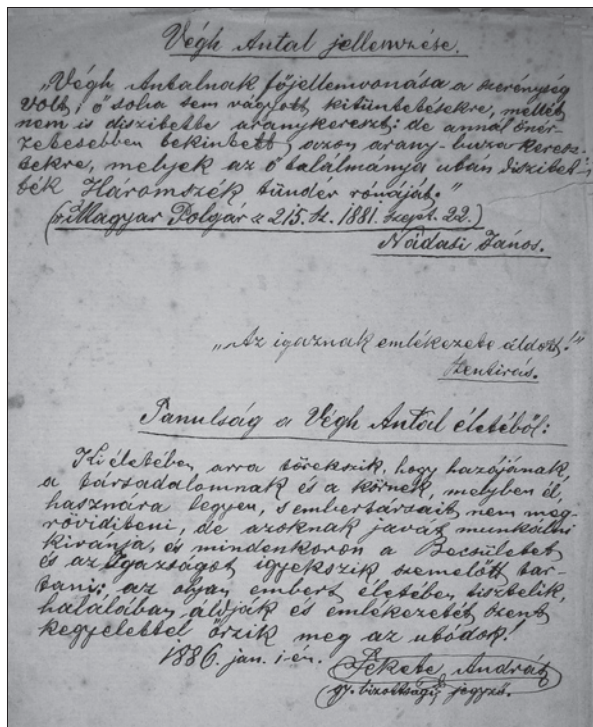 Végh Antal jellemzése.
„Végh Antalnak főjellemvonása a szerénység
volt; ő soha sem vágyott kitüntetésekre, mellét
nem is díszítette aranykereszt: de annál öner-
zetesebben tekintett azon arany-buza-keresz-
tekre, melyek az ő találmánya után díszítet-
ték Háromszék tündér rónáját."
(„Magyar Polgár" 215. sz. 1881. Szept. 22.)
Nádasi János.
„Az igaznak emlékezete áldott!"
Szentírás.
Tanulság a Végh Antal életéből:
Ki életében arra törekszik, hogy hazájának,
a társadalomnak és a körnek, melyben él,
hasznára legyen, s embertársait nem meg-
rövidíteni, de azoknak javát munkálni
kivánja, és mindenkoron a Becsületet
és az Igazságot igyekszik szemelőtt tar-
tani; az olyan embert életében tisztelik,
halálában áldják és emlékezetét szent
kegyelettel őrzik meg az utódok!
1886. jan. 1-én. Fekete András
gy. bizottsági jegyző.